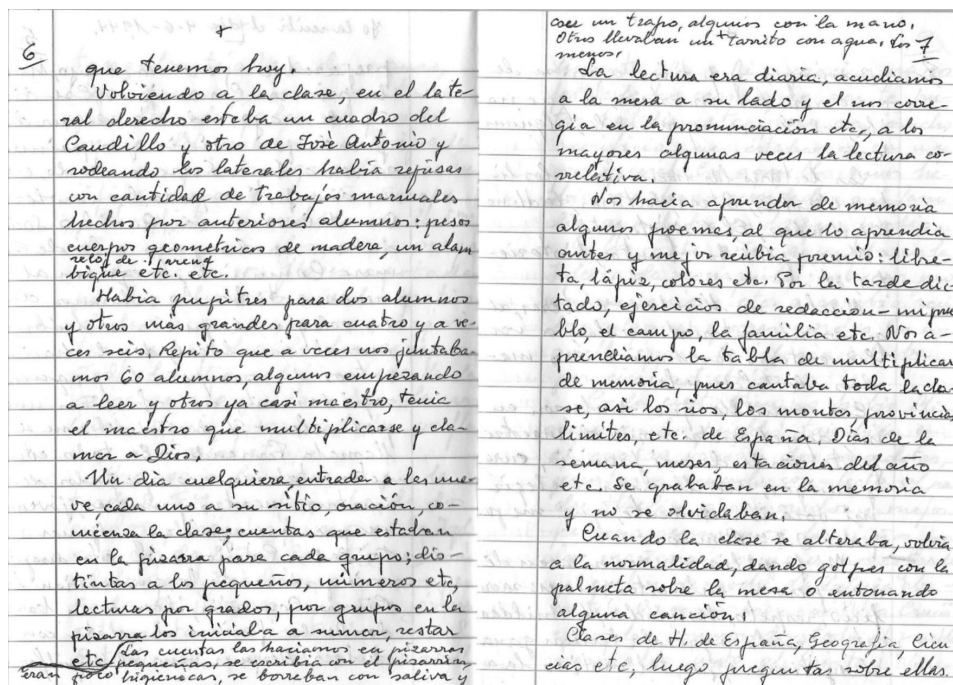 6
+
que tenemos hoy.
Volviendo a la clase, en el late-
ral derecho estaba un cuadro del
Caudillo y otro de Josè Antonio y
rodeando los laterales había repisas
con cantidad de trabajos manuales
hechos por anteriores alumnos: pesos
cuerpos geometricos de madera, un alam
reloj de arena
bique etc. etc.
Habia pupitres para dos alumnos
y otros más grandes para cuatro y a ve-
ces seis. Repito que a veces nos juntaba-
mos 60 alumnos, algunos empezando
a leer y otros ya casi maestro, tenia
el maestro que multiplicarse y cla-
mar a Dios.
Un dia cualquiera, entrada a las nue-
ve, cada uno a su sitio, oración, co-
mienza la clase; cuentas que estaban
en la pizarra para cada grupo; dis-
tintas a los pequeños, números etc,
lecturas por grados, por grupos en la
pizarra los iniciaba a sumar, restar
etc, las cuentas las haciamos en pizarras
pequeñas, se escribia con el pizarrín,
eran poco higienicas, se borraban con saliva y
7
con un trapo, algunos con la mano.
Otros llevaban un tarrito con agua, los
menos.
La lectura era diaria, acudíamos
a la mesa a su lado y el nos corre-
gia en la pronunciación etc, a los
mayores algunas veces la lectura co-
rrelativa.
Nos hacia aprender de memoria
algunos poemas, al que lo aprendia
antes y mejor recibia premio: libre-
ta, lápiz, colores etc. Por la tarde dic-
tado, ejercicios de redacción - mi pue
blo, el campo, la familia etc. Nos a-
prendiamos la tabla de multiplicar
de memoria, pues cantaba toda la cla-
se, asi los rios, los montes, provincias
limites, etc. de España. Días de la
semana, meses, estaciones del año
etc. Se grababan en la memoria
y no se olvidaban.
Cuando la clase se alteraba, volvia
a la normalidad, dando golpes con la
palmeta sobre la mesa o entonando
alguna canción.
Clases de H. de España, Geografia, Cien
cias etc, luego preguntas sobre ellas.